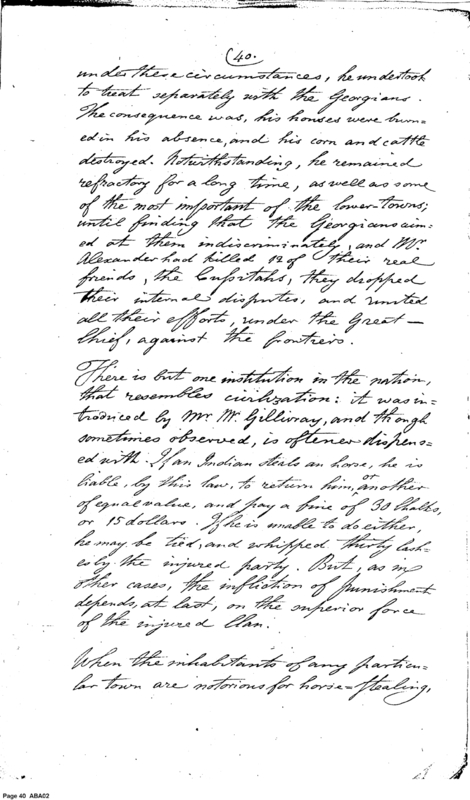 (40.
under these circumstances, he undertook
to treat separately with the Georgians.
The consequence was, his houses were burn=
ed in his absence, and his corn and cattle
destroyed. Notwithstanding, he remained
refractory for a long time, as well as some
of the most important of the lower-towns;
until finding that the Georgians aim=
ed at them indiscriminately, and Mr.
Alexander had killed 12 of their real
friends, the Cussitahs, they dropped
their internal disputes, and united
all their efforts, under the Great—
Chief, against the frontiers.
There is but one institution in the nation,
that resembles civilization: it was in=
troduced by Mr. Mc.Gillivray, and though
sometimes observed, is oftener dispens=
ed with. If an Indian steals an horse, he is
liable, by this law, to return him, or another
of equal value, and pay a fine of 30 Chalks,
or 15 dollars. If he is unable to do either,
he may be tied, and whipped thirty lash=
es by the injured party. But, as in
other cases, the infliction of punishment
depends, at last, on the superior force
of the injured Clan.
When the inhabitants of any particu=
lar town are notorious for horse=stealing,
Page 40 ABA02